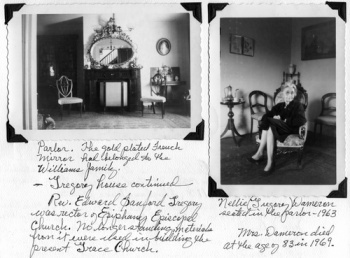 Parlor. The gold plated French
Mirror had belonged to the
Williams family.
- Gregory house continued
Rev. Edward Sanford Gregory
was rector of Epiphany Episcopal
Church. No longer standing, materials
from it were used in building the
present Grace Church.
Nellie Gregory Dameron
seated in the parlor - 1963
Mrs. Dameron died
at the age of 83 in 1969.